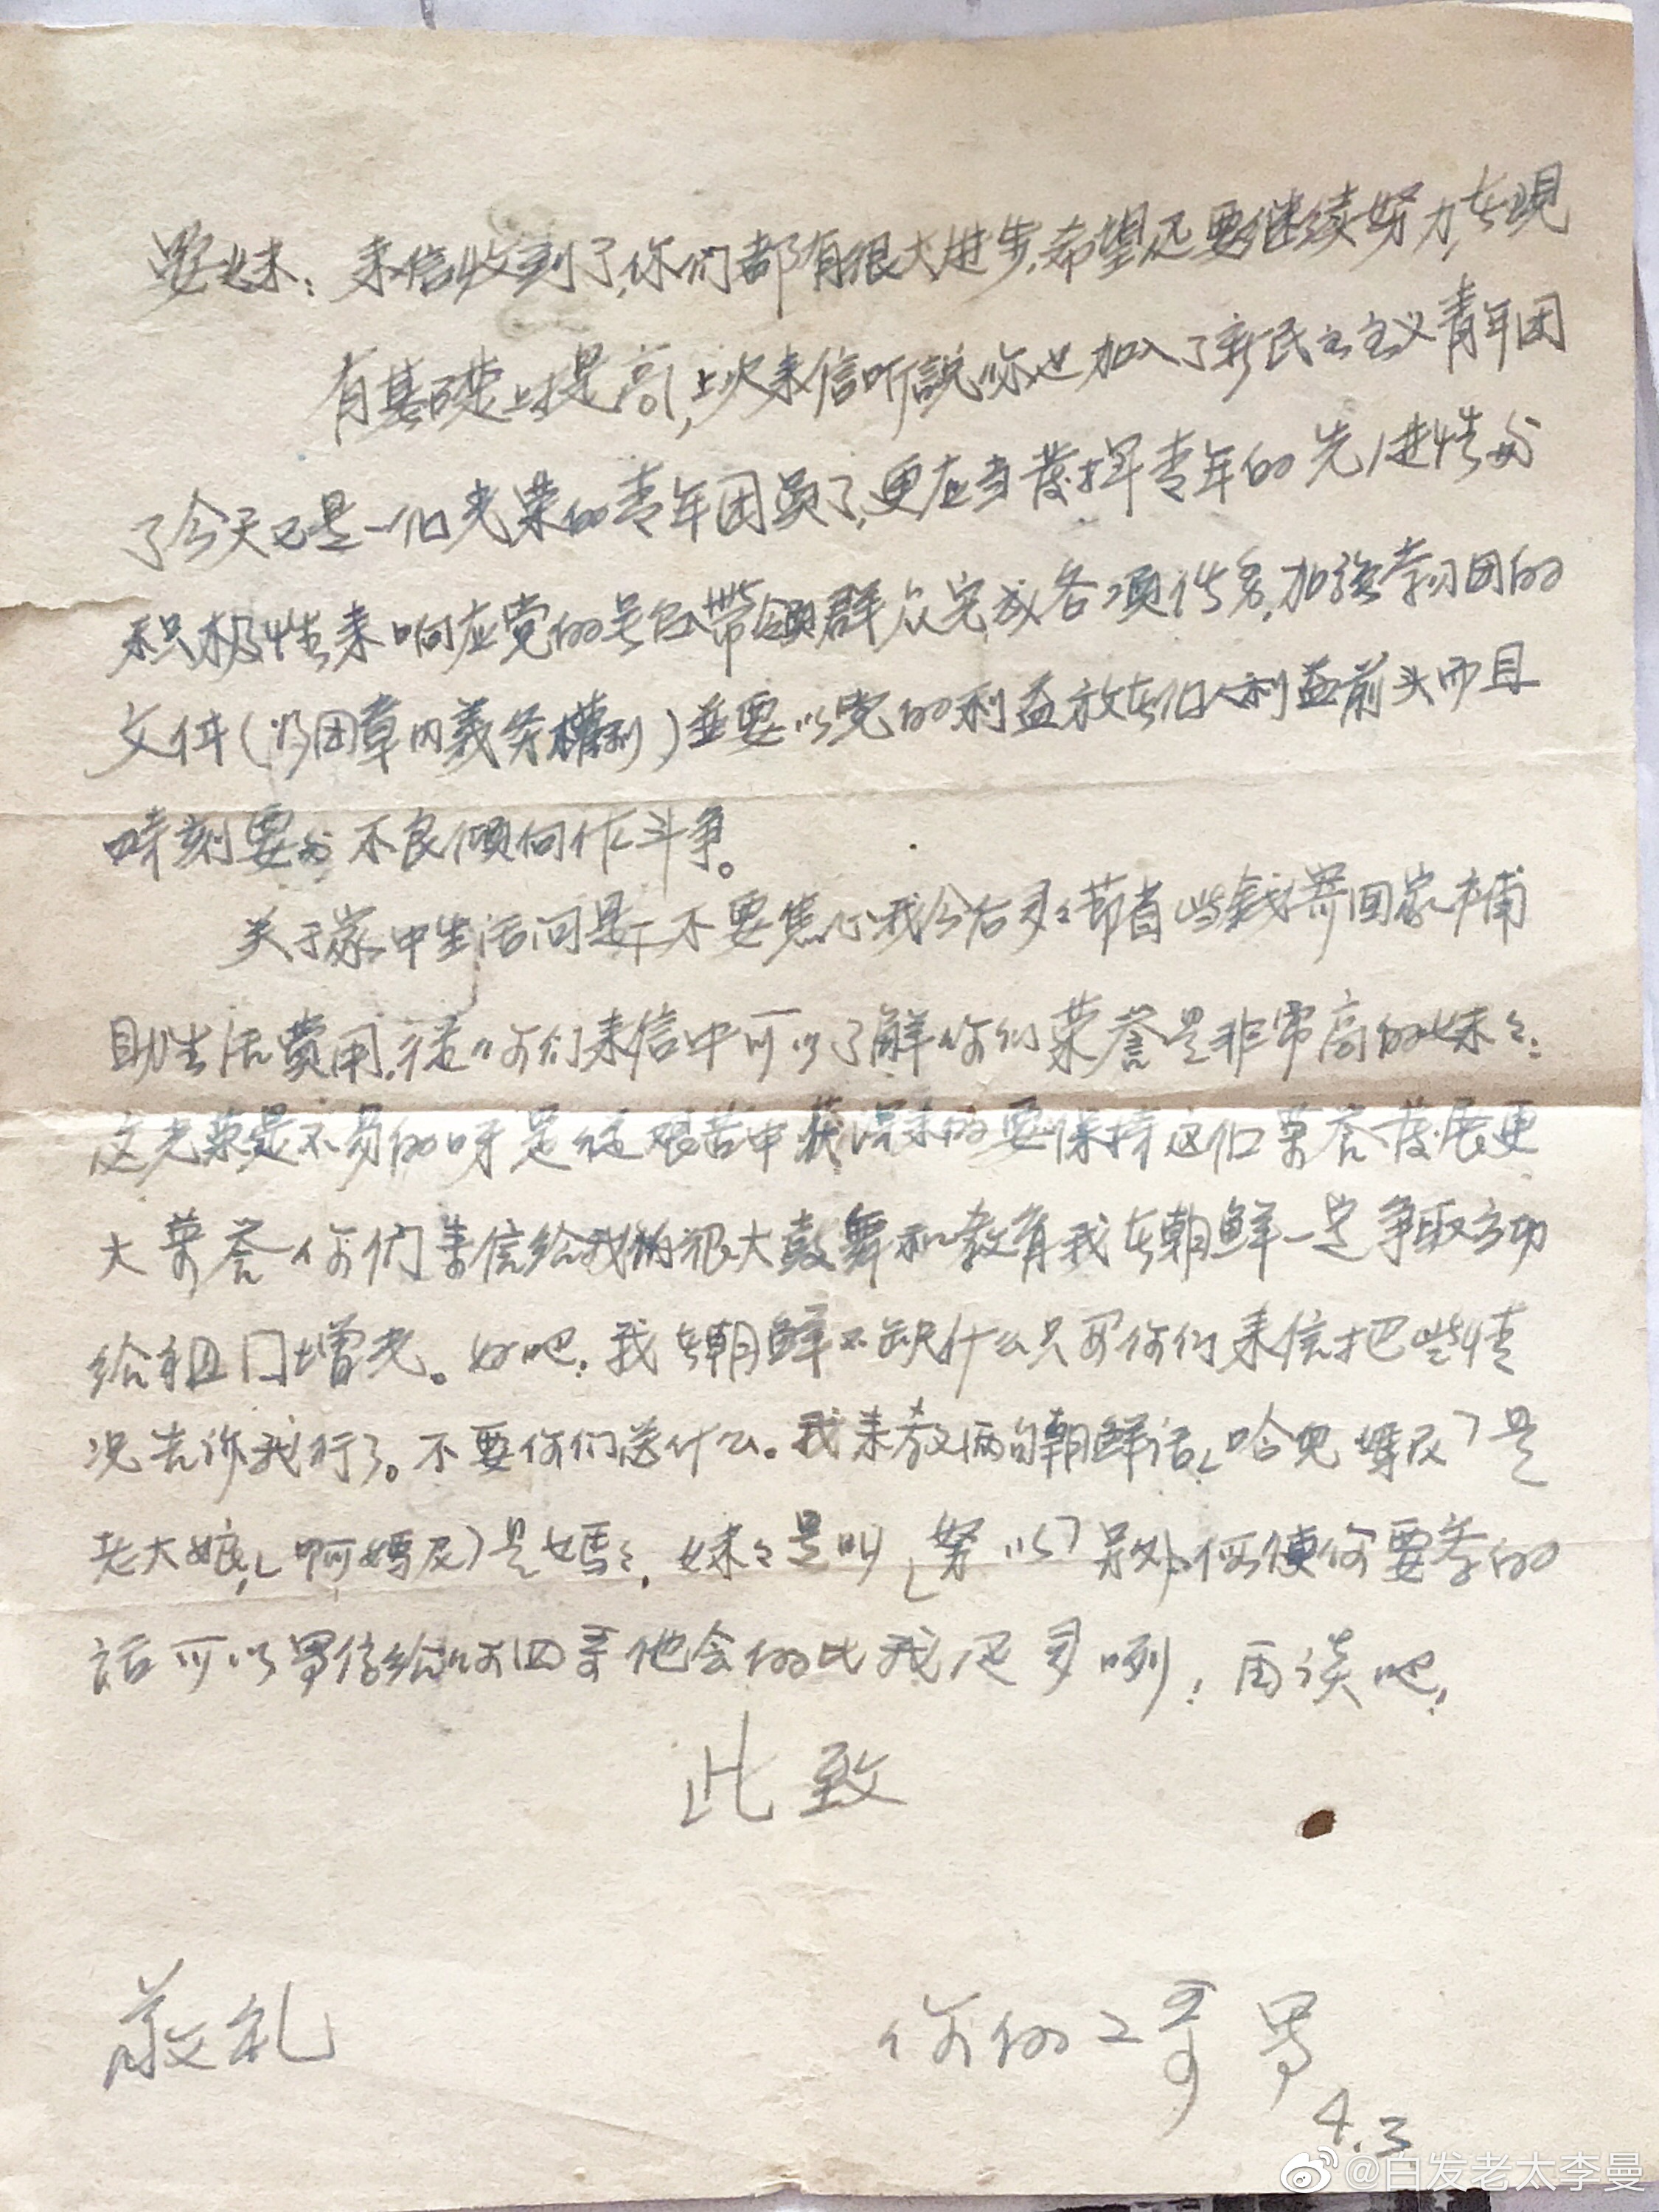 要妹：来信收到了，你们都有很大进步，希望还要继续努力，在现
有基礎上提高！，上次来信听説你也加入了新民主主义青年团
了今天已是一个光荣的青年团员了，更应当發揮青年的先进性与
积极性来响应党的号召帶領群众完成各項任务，加強学习团的
文件（以团章内義务權利）並要以党的利益放在个人利益前头而且
時刻要与不良傾向作斗争。
关于家中生活问题不要焦心我今后多々节省些錢寄回家補
助生活費用，从你们来信中可以了解你们荣誉是非常高的妹々：
这光荣是不易的呀是從艰苦中获得来的要保持这个荣誉發展更
大荣誉你们来信给我的很大鼓舞和教育我在朝鲜一定争取立功
给祖门增光。好吧！我在朝鲜不缺什么只可你们来信把些情
况告诉我行了。不要你们送什么。我来教俩句朝鲜话「哈兒嬤及」是
老大娘，「啊媽及」是妈々，妹々是叫「努以」另外假使你要学的
话可以写信给你四哥他会的比我还多咧！再谈吧！
此致
敬礼
你的二哥写
4.3
@白发老太李曼